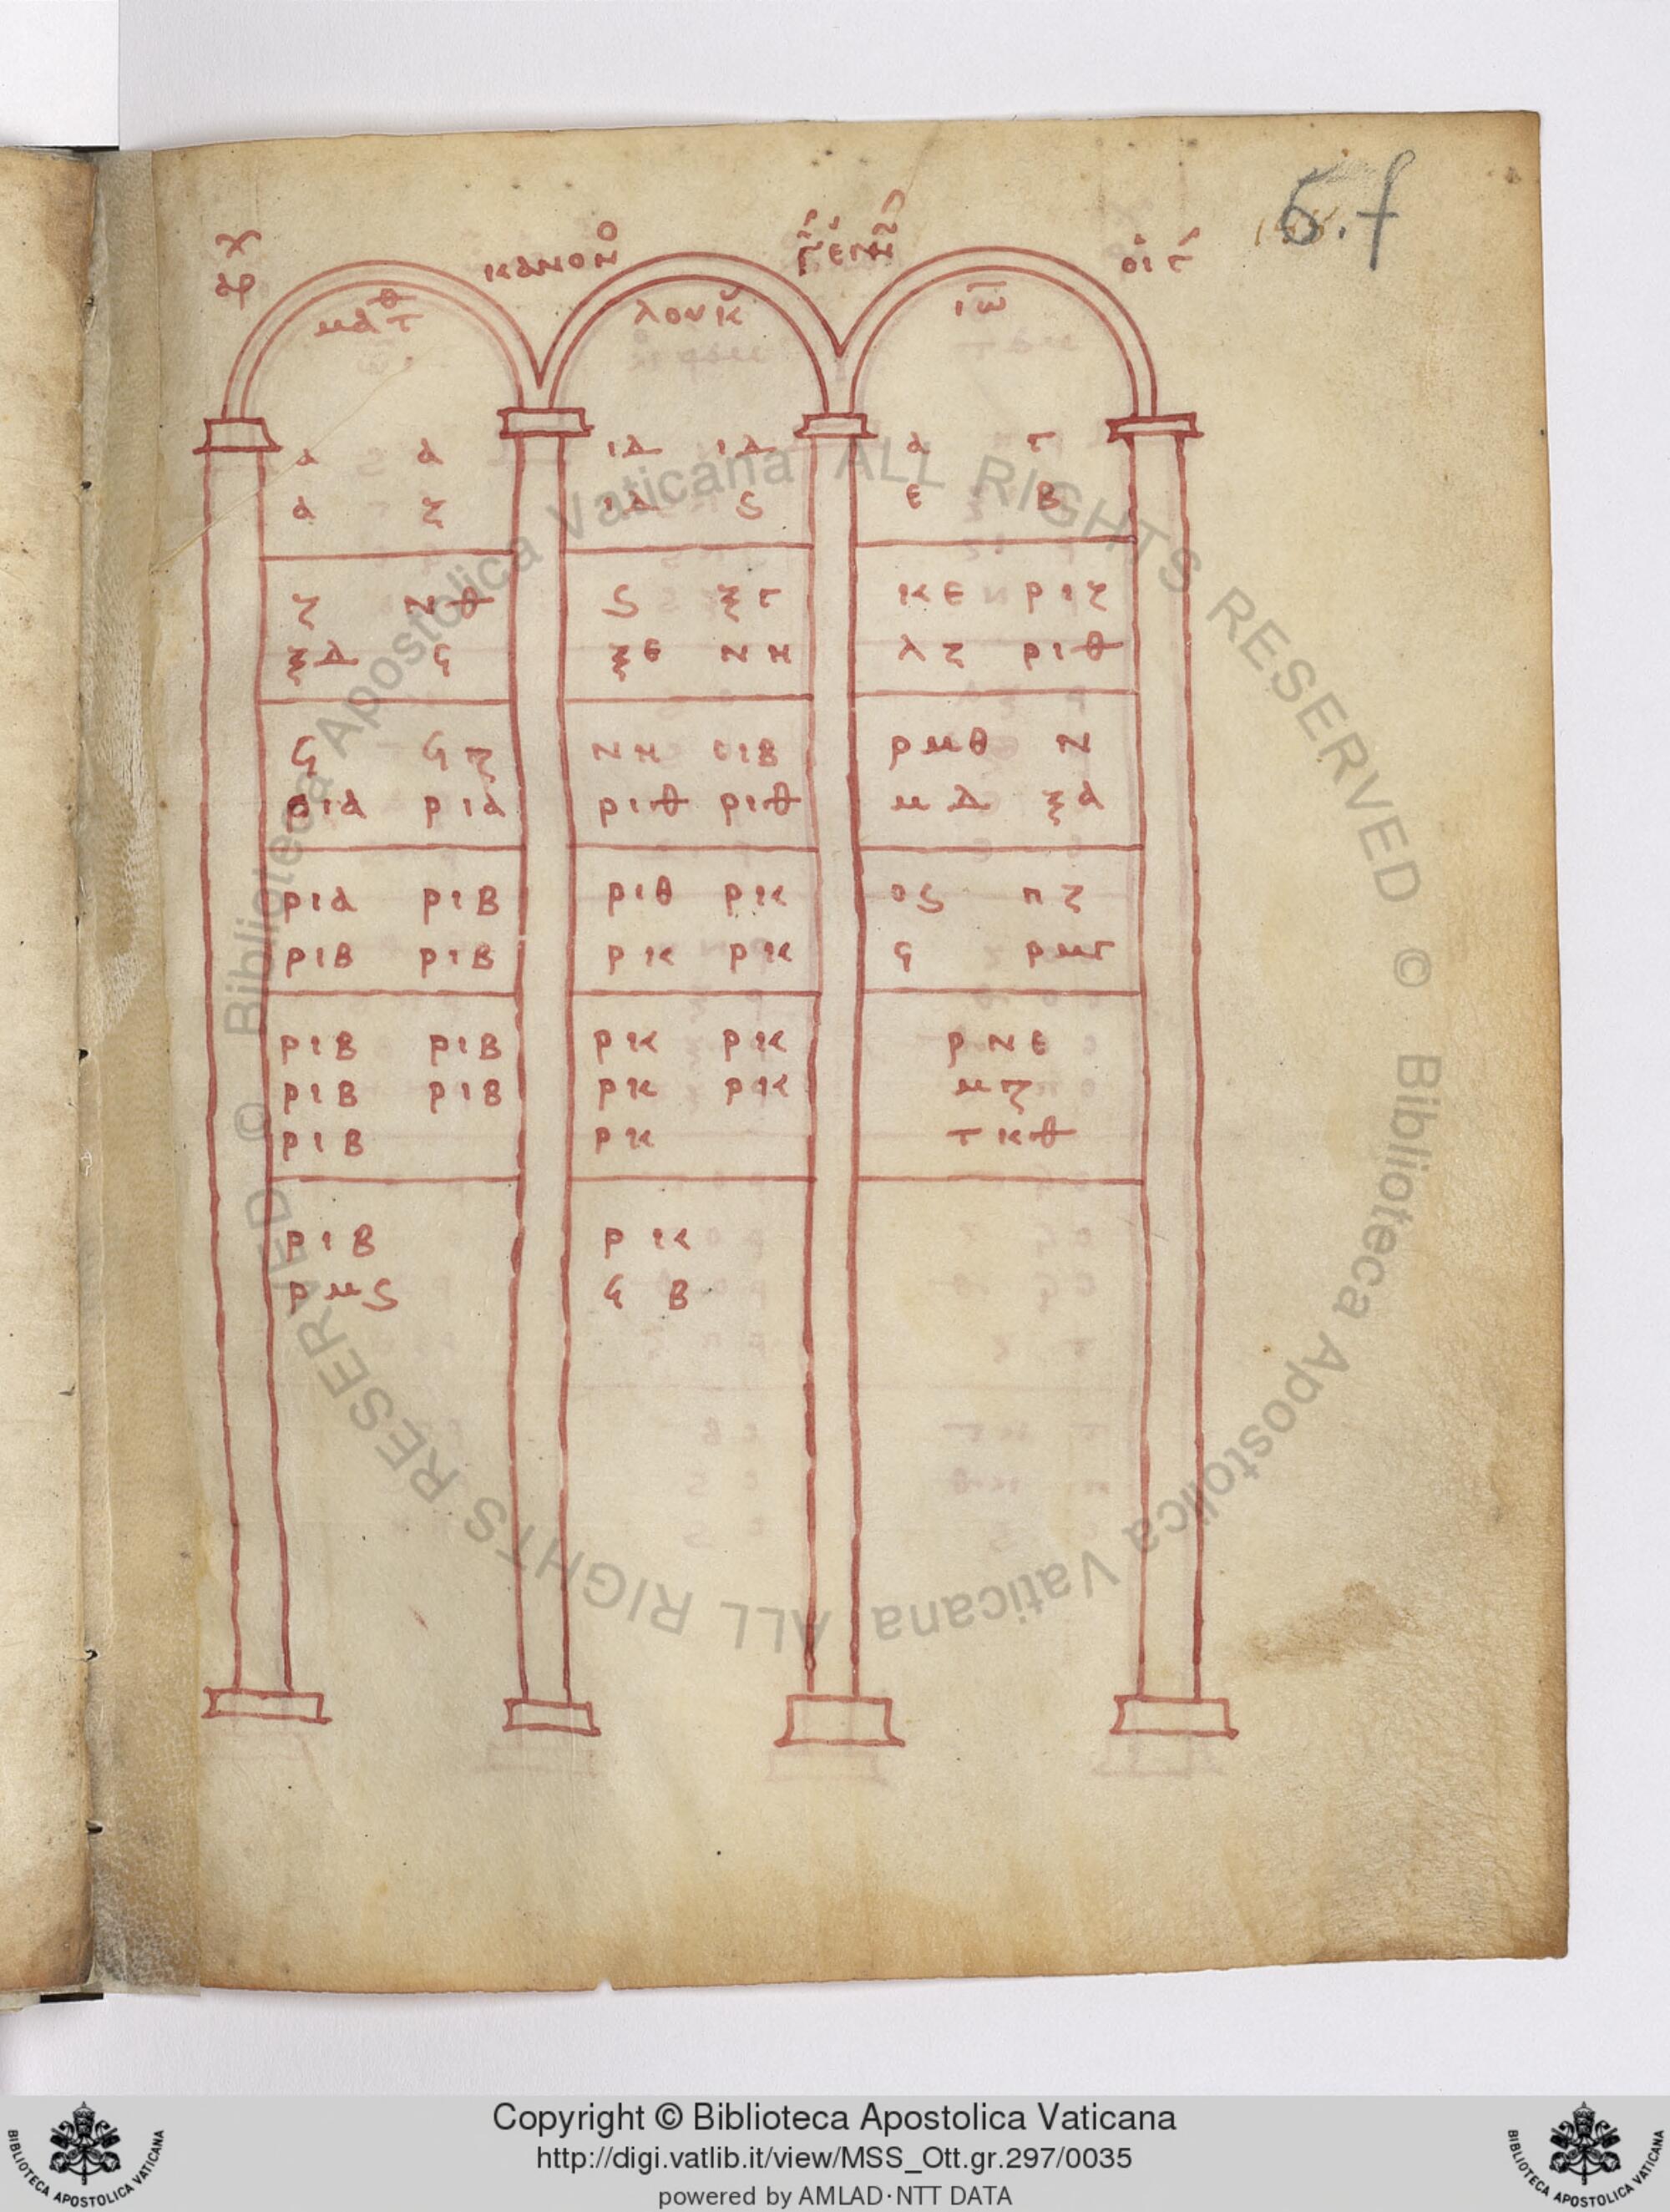 5.f
χ
αρ κανονο
οι γ
ματθ λουκ ιω
α α ιδ ιδ α γ
α ζ ιδ ς ε β
ζ νθ ς ξγ κε ριζ
ξδ ϟ ξε νη λζ ριθ
ϟ ϟζ νη σιβ ρμθ ν
ρια ρια ριθ ριθ μδ ξα
ρια ριβ ριθ ρκ ος πζ
ριβ ριβ ρκ ρκ ϟ ρμγ
ριβ ριβ ρκ ρκ ρνε
ριβ ριβ ρκ ρκ μζ
ριβ ρκ τκθ
ριβ ρκ
ρμς ϟβ
© Biblioteca Apostolica Vaticana ALL RIGHTS RESERVED © Biblioteca Apostolica Vaticana ALL RIGHTS RESERVED
Copyright © Biblioteca Apostolica Vaticana
http://digi.vatlib.it/view/MSS_Ott.gr.297/0035
powered by AMLAD·NTT DATA
BIBLIOTECA APOSTOLICA VATICANA
BIBLIOTECA APOSTOLICA VATICANA